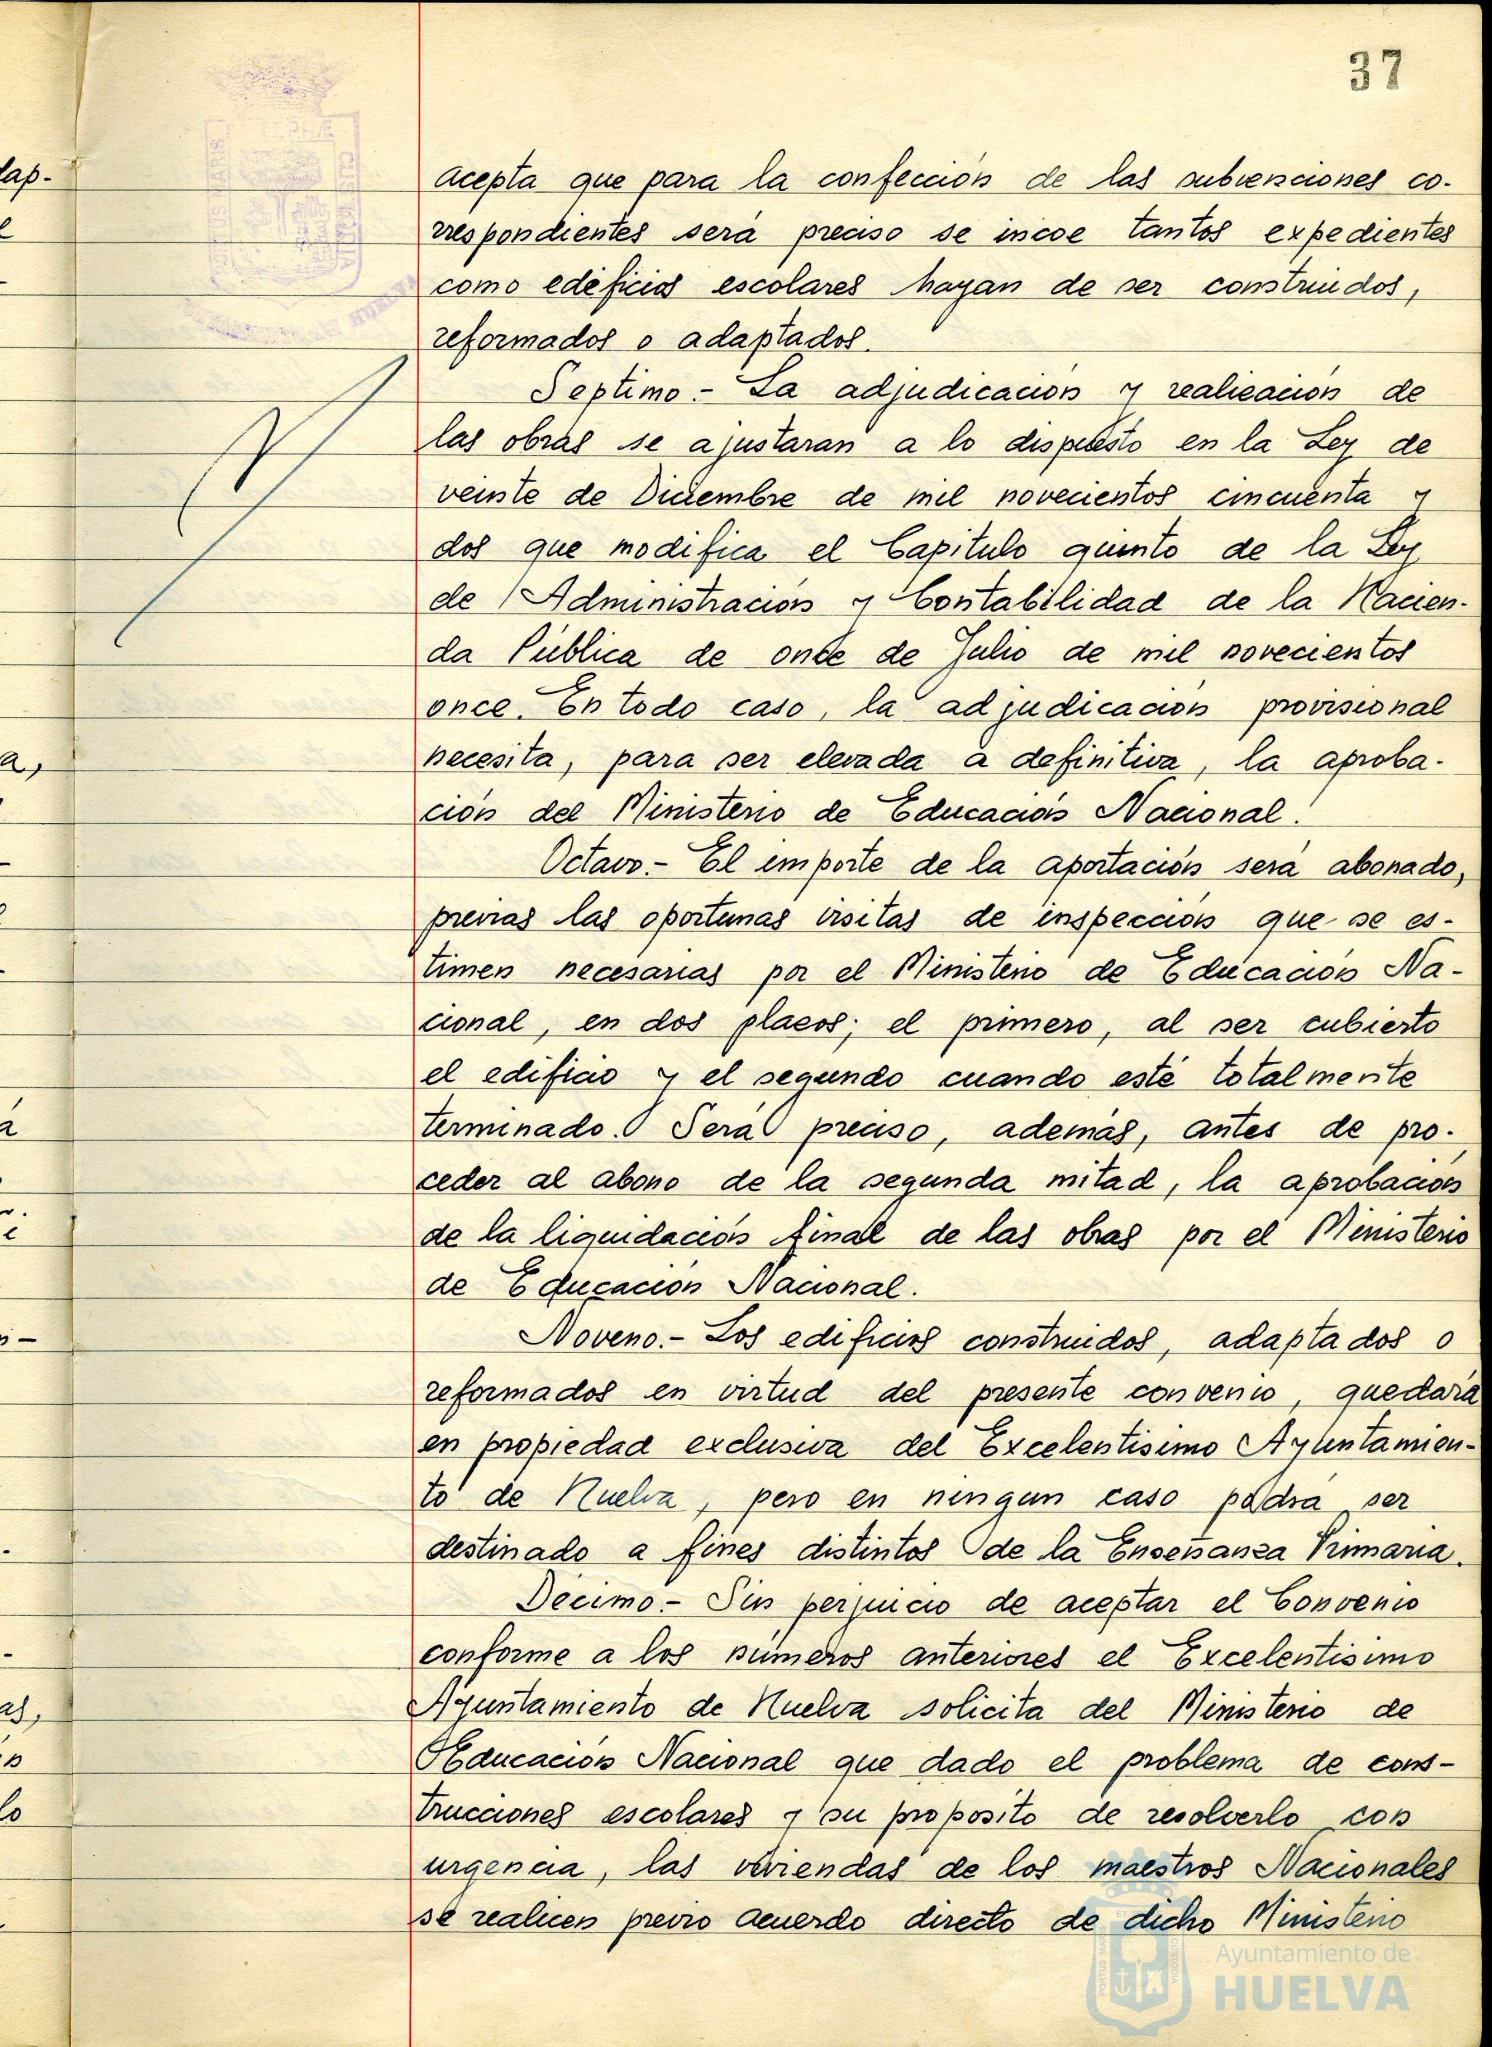 37
acepta que para la confección de las subvenciones co-
rrespondientes será preciso se incoe tantos expedientes
como edificios escolares hayan de ser construidos,
reformados o adaptados.
Septimo.- La adjudicación y realización de
las obras se ajustaran a lo dispuesto en la Ley de
veinte de Diciembre de mil novecientos cincuenta y
dos que modifica el Capitulo quinto de la Ley
de Administración y Contabilidad de la Hacien-
da Pública de once de Julio de mil novecientos
once. En todo caso, la adjudicación provisional
necesita, para ser elevada a definitiva, la aproba-
ción del Ministerio de Educación Nacional.
Octavo.- El importe de la aportación será abonado,
previas las oportunas visitas de inspección que se es-
timen necesarias por el Ministerio de Educación Na-
cional, en dos plazos; el primero, al ser cubierto
el edificio y el segundo cuando esté totalmente
terminado. Será preciso, además, antes de pro-
ceder al abono de la segunda mitad, la aprobación
de la liquidación final de las obras por el Ministerio
de Educación Nacional.
Noveno.- Los edificios construidos, adaptados o
reformados en virtud del presente convenio, quedará
en propiedad exclusiva del Excelentisimo Ayuntamien-
to de Huelva, pero en ningun caso podrá ser
destinado a fines distintos de la Enseñanza Primaria.
Décimo.- Sin perjuicio de aceptar el Convenio
conforme a los números anteriores el Excelentisimo
Ayuntamiento de Huelva solicita del Ministerio de
Educación Nacional que dado el problema de cons-
trucciones escolares y su proposito de resolverlo con
urgencia, las viviendas de los maestros Nacionales
se realicen previo acuerdo directo de dicho Ministerio
Ayuntamiento de
HUELVA